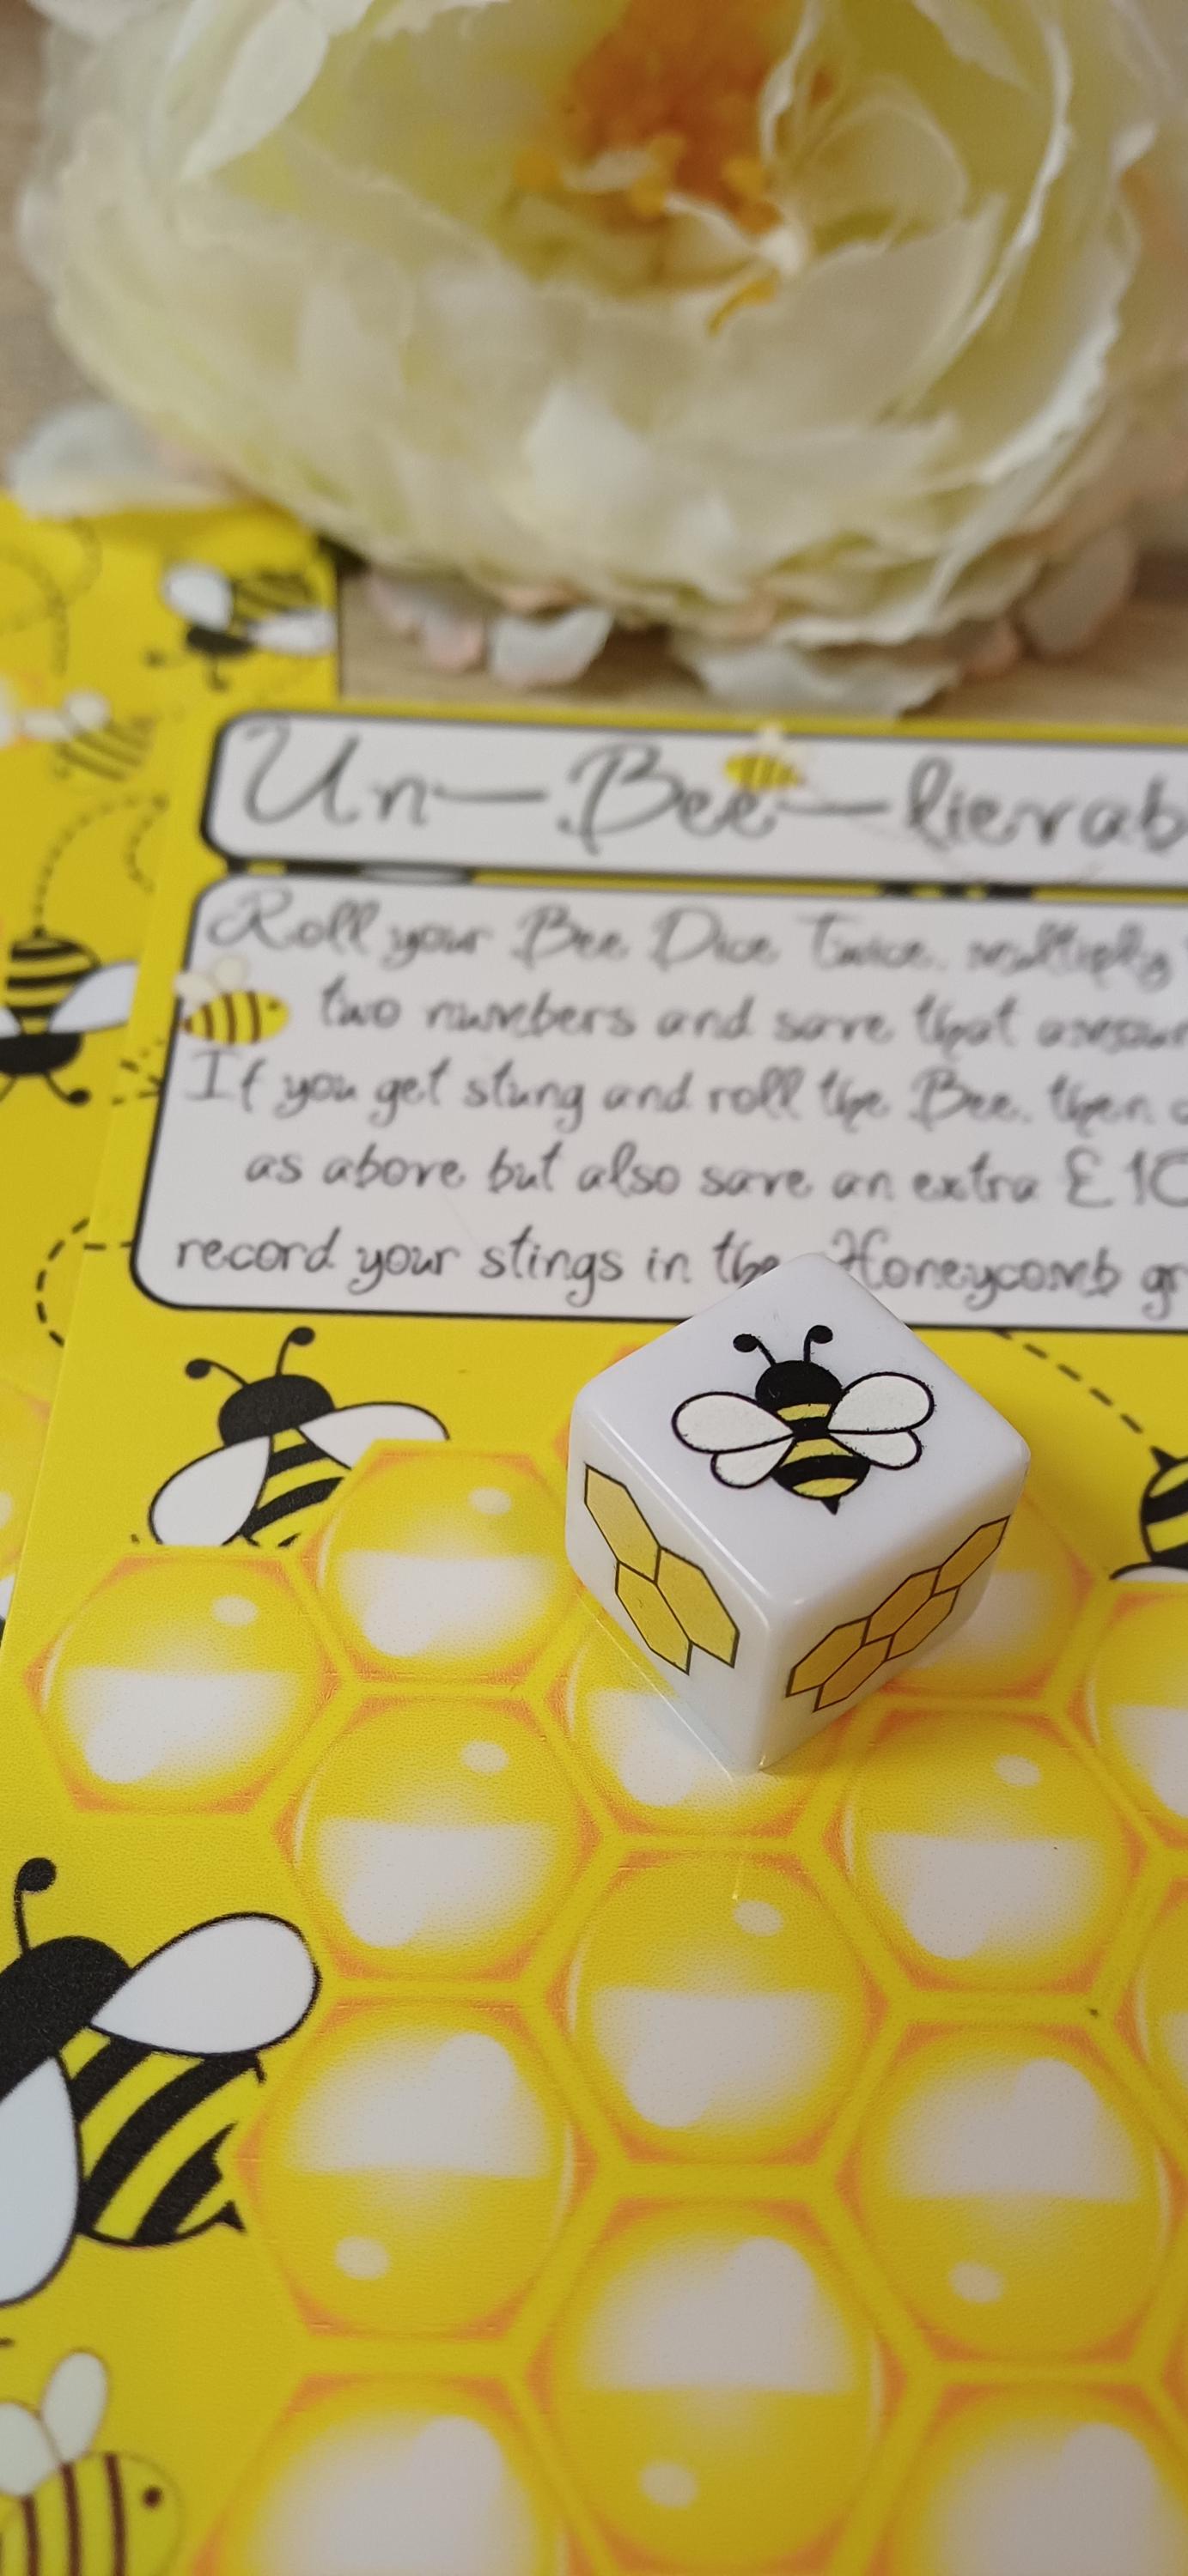 Un-Bee-lievab
Roll your Bee Dice Twice, multiply
two numbers and save that amoun
If you get stung and roll the Bee, then
as above but also save an extra £10
record your stings in the Honeycomb gr